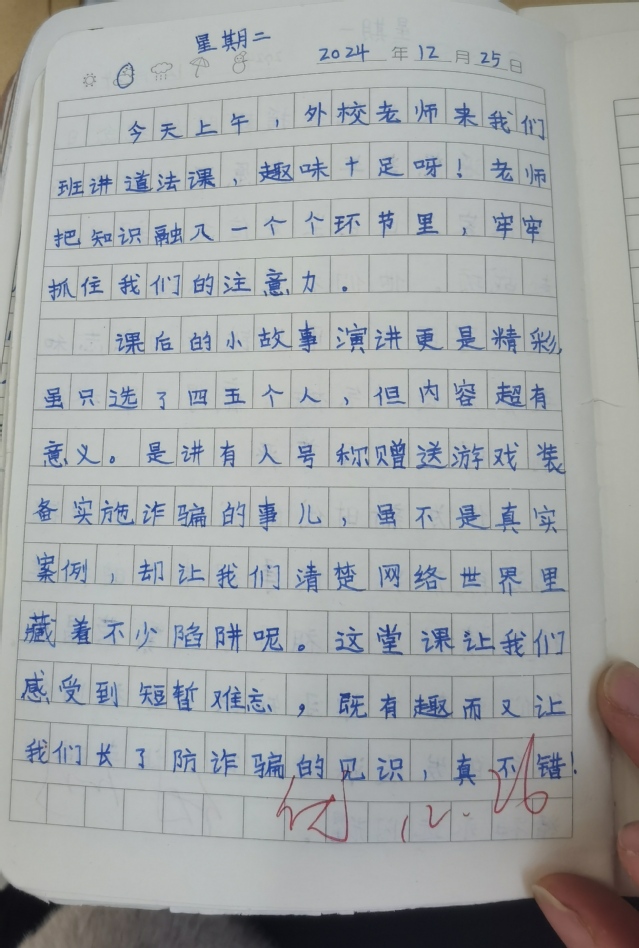 星期二
2024年12月25日
今天上午，外校老师来我们
班讲道法课，趣味十足呀！老师
把知识融入一个个环节里，牢牢
抓住我们的注意力。
课后的小故事演讲更是精彩，
虽只选了四五个人，但内容超有
意义。是讲有人号称赠送游戏装
备实施诈骗的事儿，虽不是真实
案例，却让我们清楚网络世界里
藏着不少陷阱呢。这堂课让我们
感受到短暂难忘，既有趣而又让
我们长了防诈骗的见识，真不错！
12.26